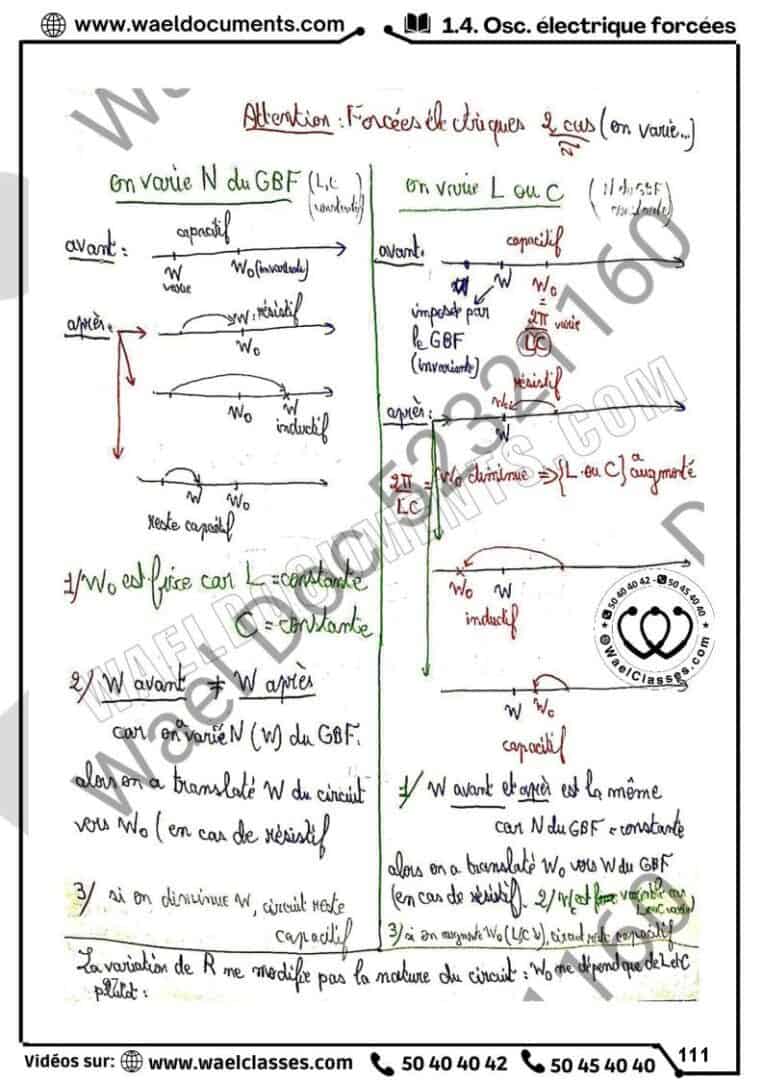 www.waeldocuments.com
1.4. Osc. électrique forcées
Attention : Forcées électriques 2 cas (on varie...)
on varie N du GBF (L,C
constante)
avant :
capacitif
W
varie
W₀ (invariante)
après :
W₁ résistif
W₀
W₀ W
inductif
W W₀
reste capacitif
1/ W₀ est fixe car L = constante
C = constante
2/ W avant ≠ W après
car on a varié N (W) du GBF.
alors on a translaté W du circuit
vers W₀ (en cas de résistif
3/ si on diminue W, circuit reste
capacitif
on varie L ou C (N du GBF
constante)
avant.
capacitif
W W₀
imposée par
le GBF
(invariante)
=
2π varie
LC
résistif
après :
W₀
W
2π = W₀ diminue ⇒ {L ou C} a augmenté
LC
W₀ W
inductif
W W₀
capacitif
1/ W avant et après est la même
car N du GBF = constante
alors on a translaté W₀ vers W du GBF
(en cas de résistif. 2/ variable car
3/ si on augmente W₀ (L,C ↓), circuit reste capacitif
La variation de R ne modifie pas la nature du circuit : W₀ ne dépend que de L et C
plutôt :
Wael Doc 52321160
WAELDOCUMENTS.COM
50 40 40 42 - 50 45 40 40
WaelClasses.com
Vidéos sur: www.waelclasses.com 50 40 40 42 50 45 40 40
111